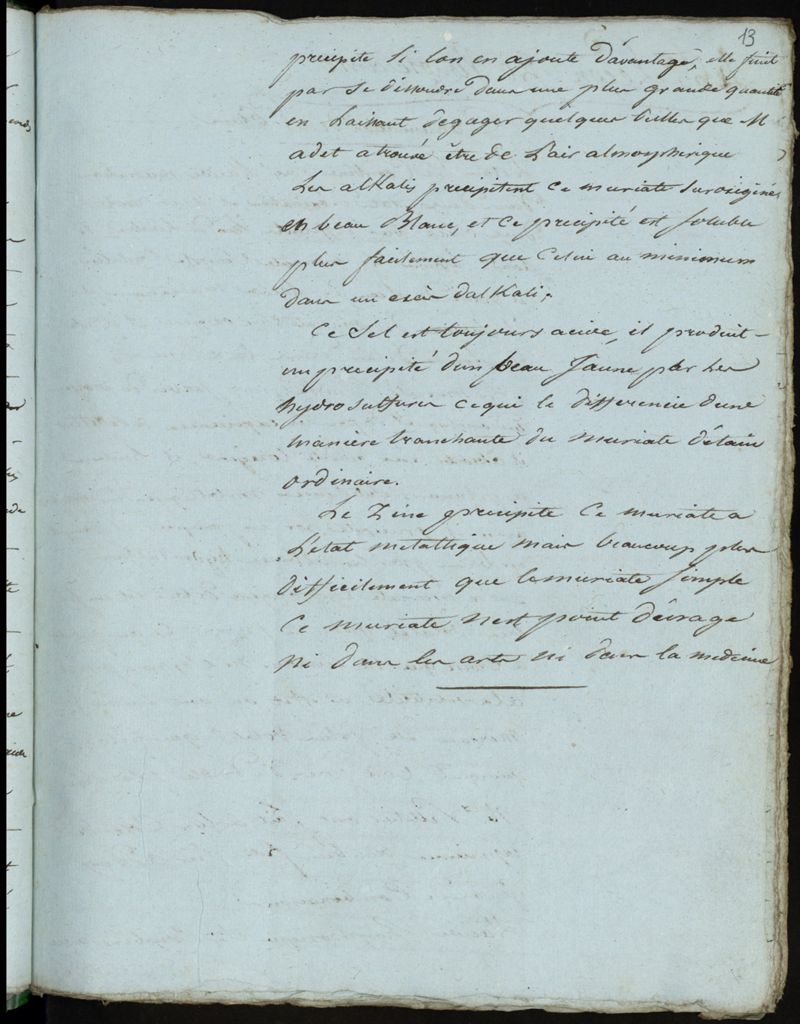 13
precipite si lon en ajoute d'avantage, elle finit
par se dissoudre dans une plus grande quantité
en Laissant degager quelques bulles que M
adet a trouvé être de L'air atmospherique
Les alKalis precipitent ce muriate suroxigéné
en beau Blanc, et ce precipité est soluble
plus facilement que Celui au minimum
dans un excès d'alKali.
Ce Sel est toujours acide, il produit
un precipité d'un beau Jaune par Les
hydrosulfures ce qui le differencie d'une
maniere tranchante du muriate d'étain
ordinaire.
Le Zinc precipite Ce muriate a
L'état metallique mais beaucoup plus
difficilement que le muriate simple
Ce muriate n'est point d'usage
ni dans les arts ni dans la medecine